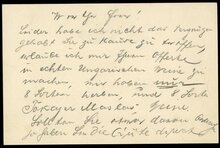 Werther Herr!
Leider habe ich nicht das Vergnügen
gehabt Sie zu Hause zu treffen,
erlaube ich mir Ihnen Offerte
in echten Ungarischen Weine zu
machen, wir haben nur
8 Sorten Herben, und 8 Sorte
Tokayer Ausles Weine.
Sollten Sie etwas davon
so haben Sie die Güte